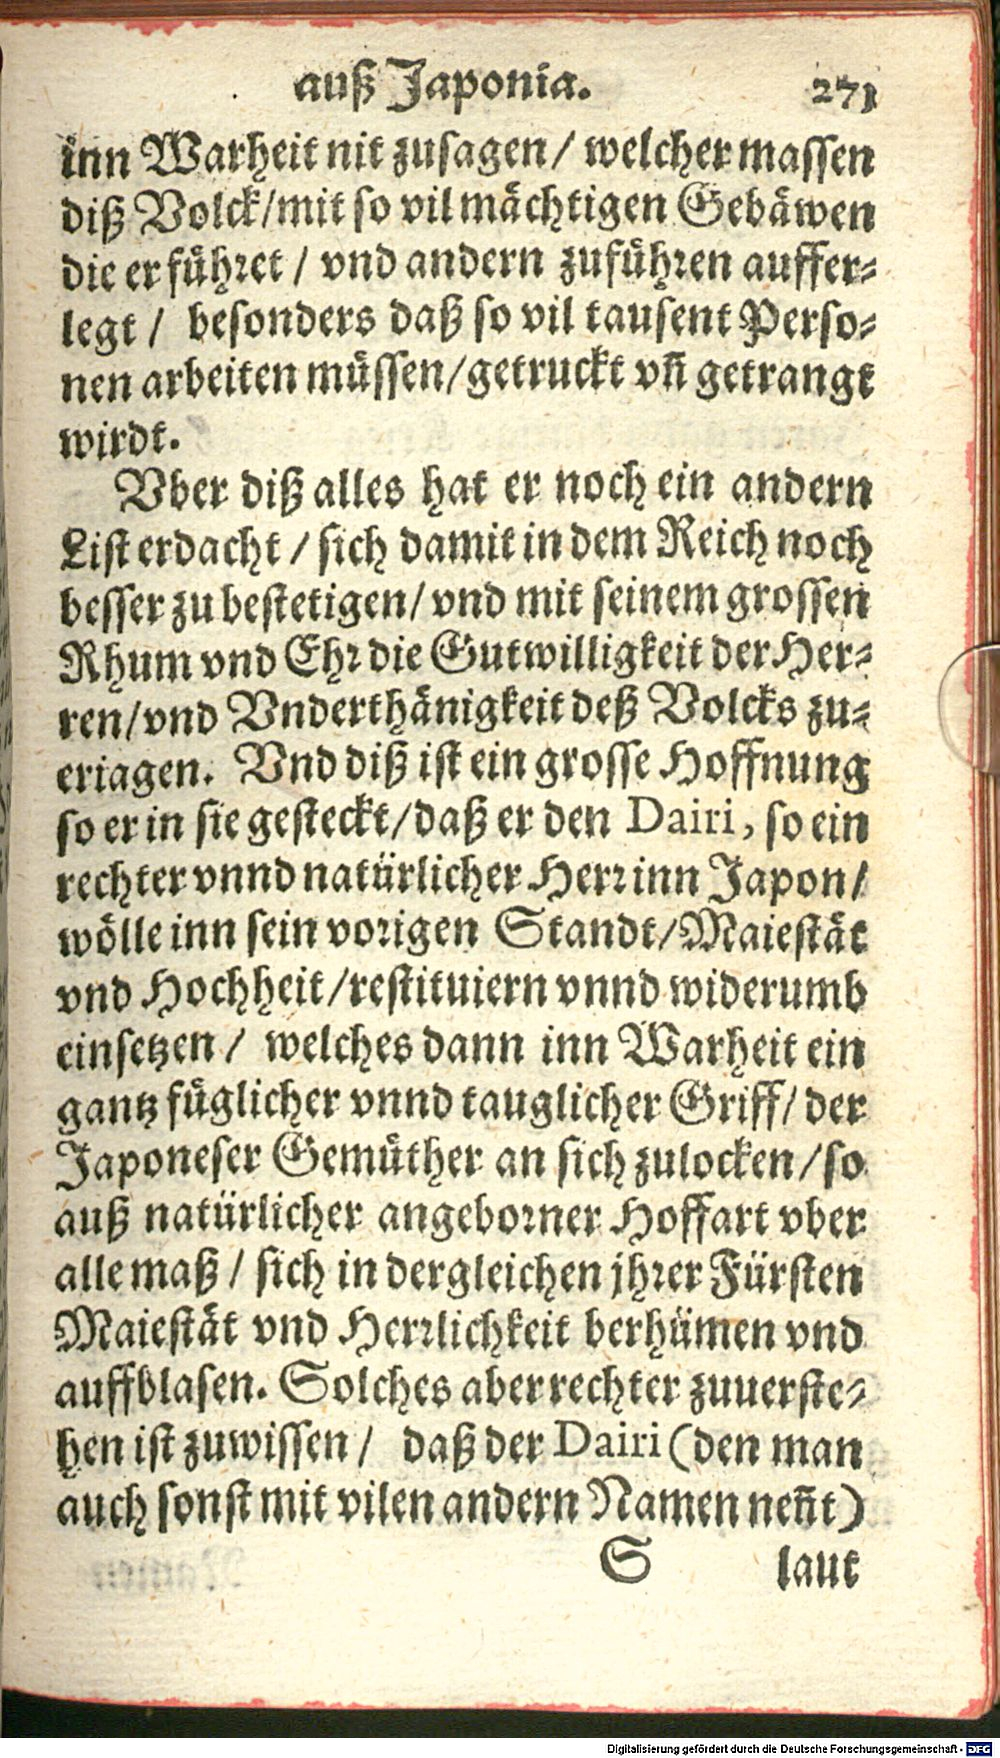 auß Japonia. 271
inn Warheit nit zusagen / welcher massen
diß Volck/mit so vil mächtigen Gebäwen
die er führet / vnd andern zuführen auffer-
legt / besonders daß so vil tausent Perso-
nen arbeiten müssen/getruckt vn̄ getrangt
wirdt.
Vber diß alles hat er noch ein andern
List erdacht / sich damit in dem Reich noch
besser zu bestetigen/vnd mit seinem grossen
Rhum vnd Ehr die Gutwilligkeit der Her-
ren/vnd Vnderthänigkeit deß Volcks zu-
eriagen. Vnd diß ist ein grosse Hoffnung
so er in sie gesteckt/daß er den Dairi, so ein
rechter vnnd natürlicher Herr inn Japon/
wölle inn sein vorigen Standt/Maiestät
vnd Hochheit/restituiern vnnd widerumb
einsetzen / welches dann inn Warheit ein
gantz füglicher vnnd tauglicher Griff/ der
Japoneser Gemüther an sich zulocken/so
auß natürlicher angeborner Hoffart vber
alle maß / sich in dergleichen jhrer Fürsten
Maiestät vnd Herrlichkeit berhümen vnd
auffblasen. Solches aber rechter zuuerste-
hen ist zuwissen / daß der Dairi (den man
auch sonst mit vilen andern Namen nen̄t)
S laut
Digitalisierung gefördert durch die Deutsche Forschungsgemeinschaft - DFG